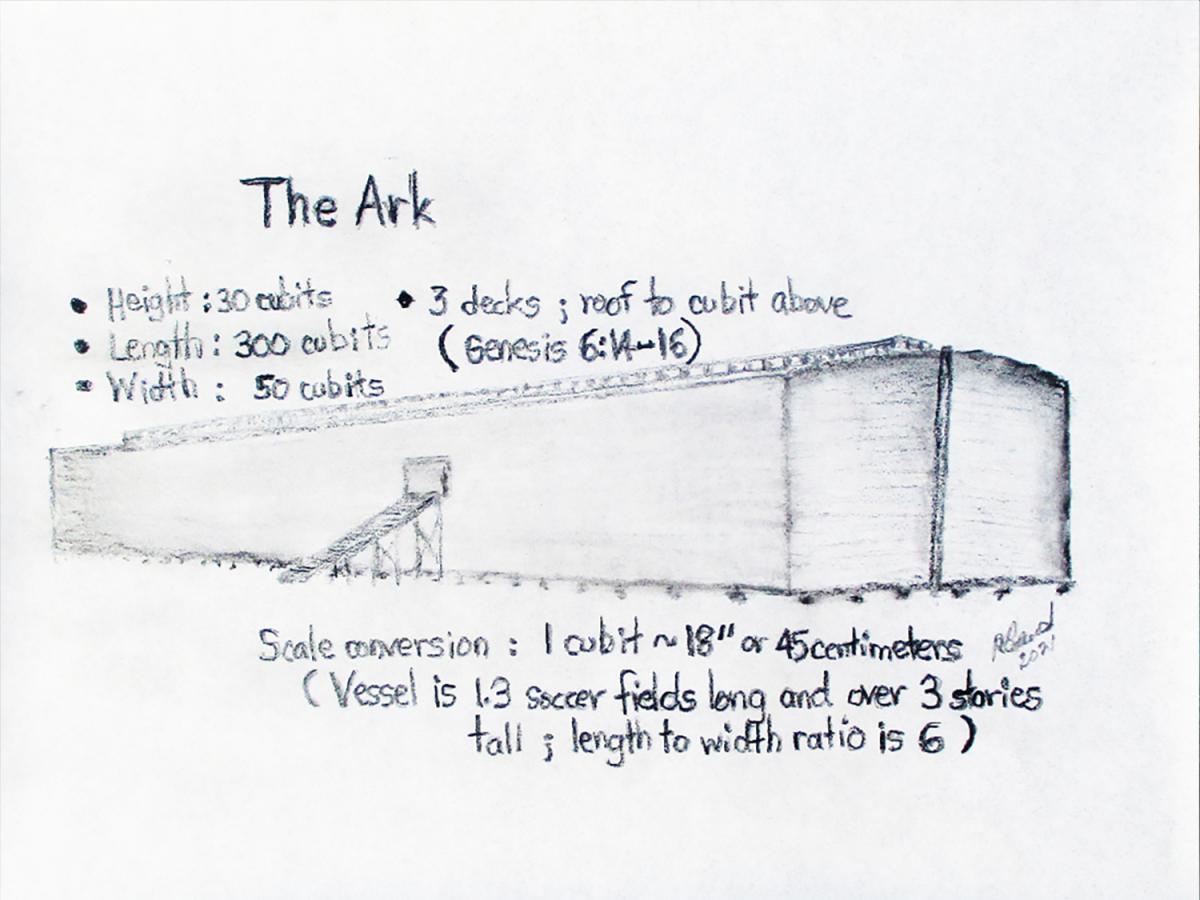 The Ark
• Height : 30 cubits
• Length : 300 cubits
• Width : 50 cubits
• 3 decks ; roof to cubit above
(Genesis 6:14-16)
Scale conversion : 1 cubit ~ 18" or 45 centimeters
2021
(Vessel is 1.3 soccer fields long and over 3 stories
tall ; length to width ratio is 6)